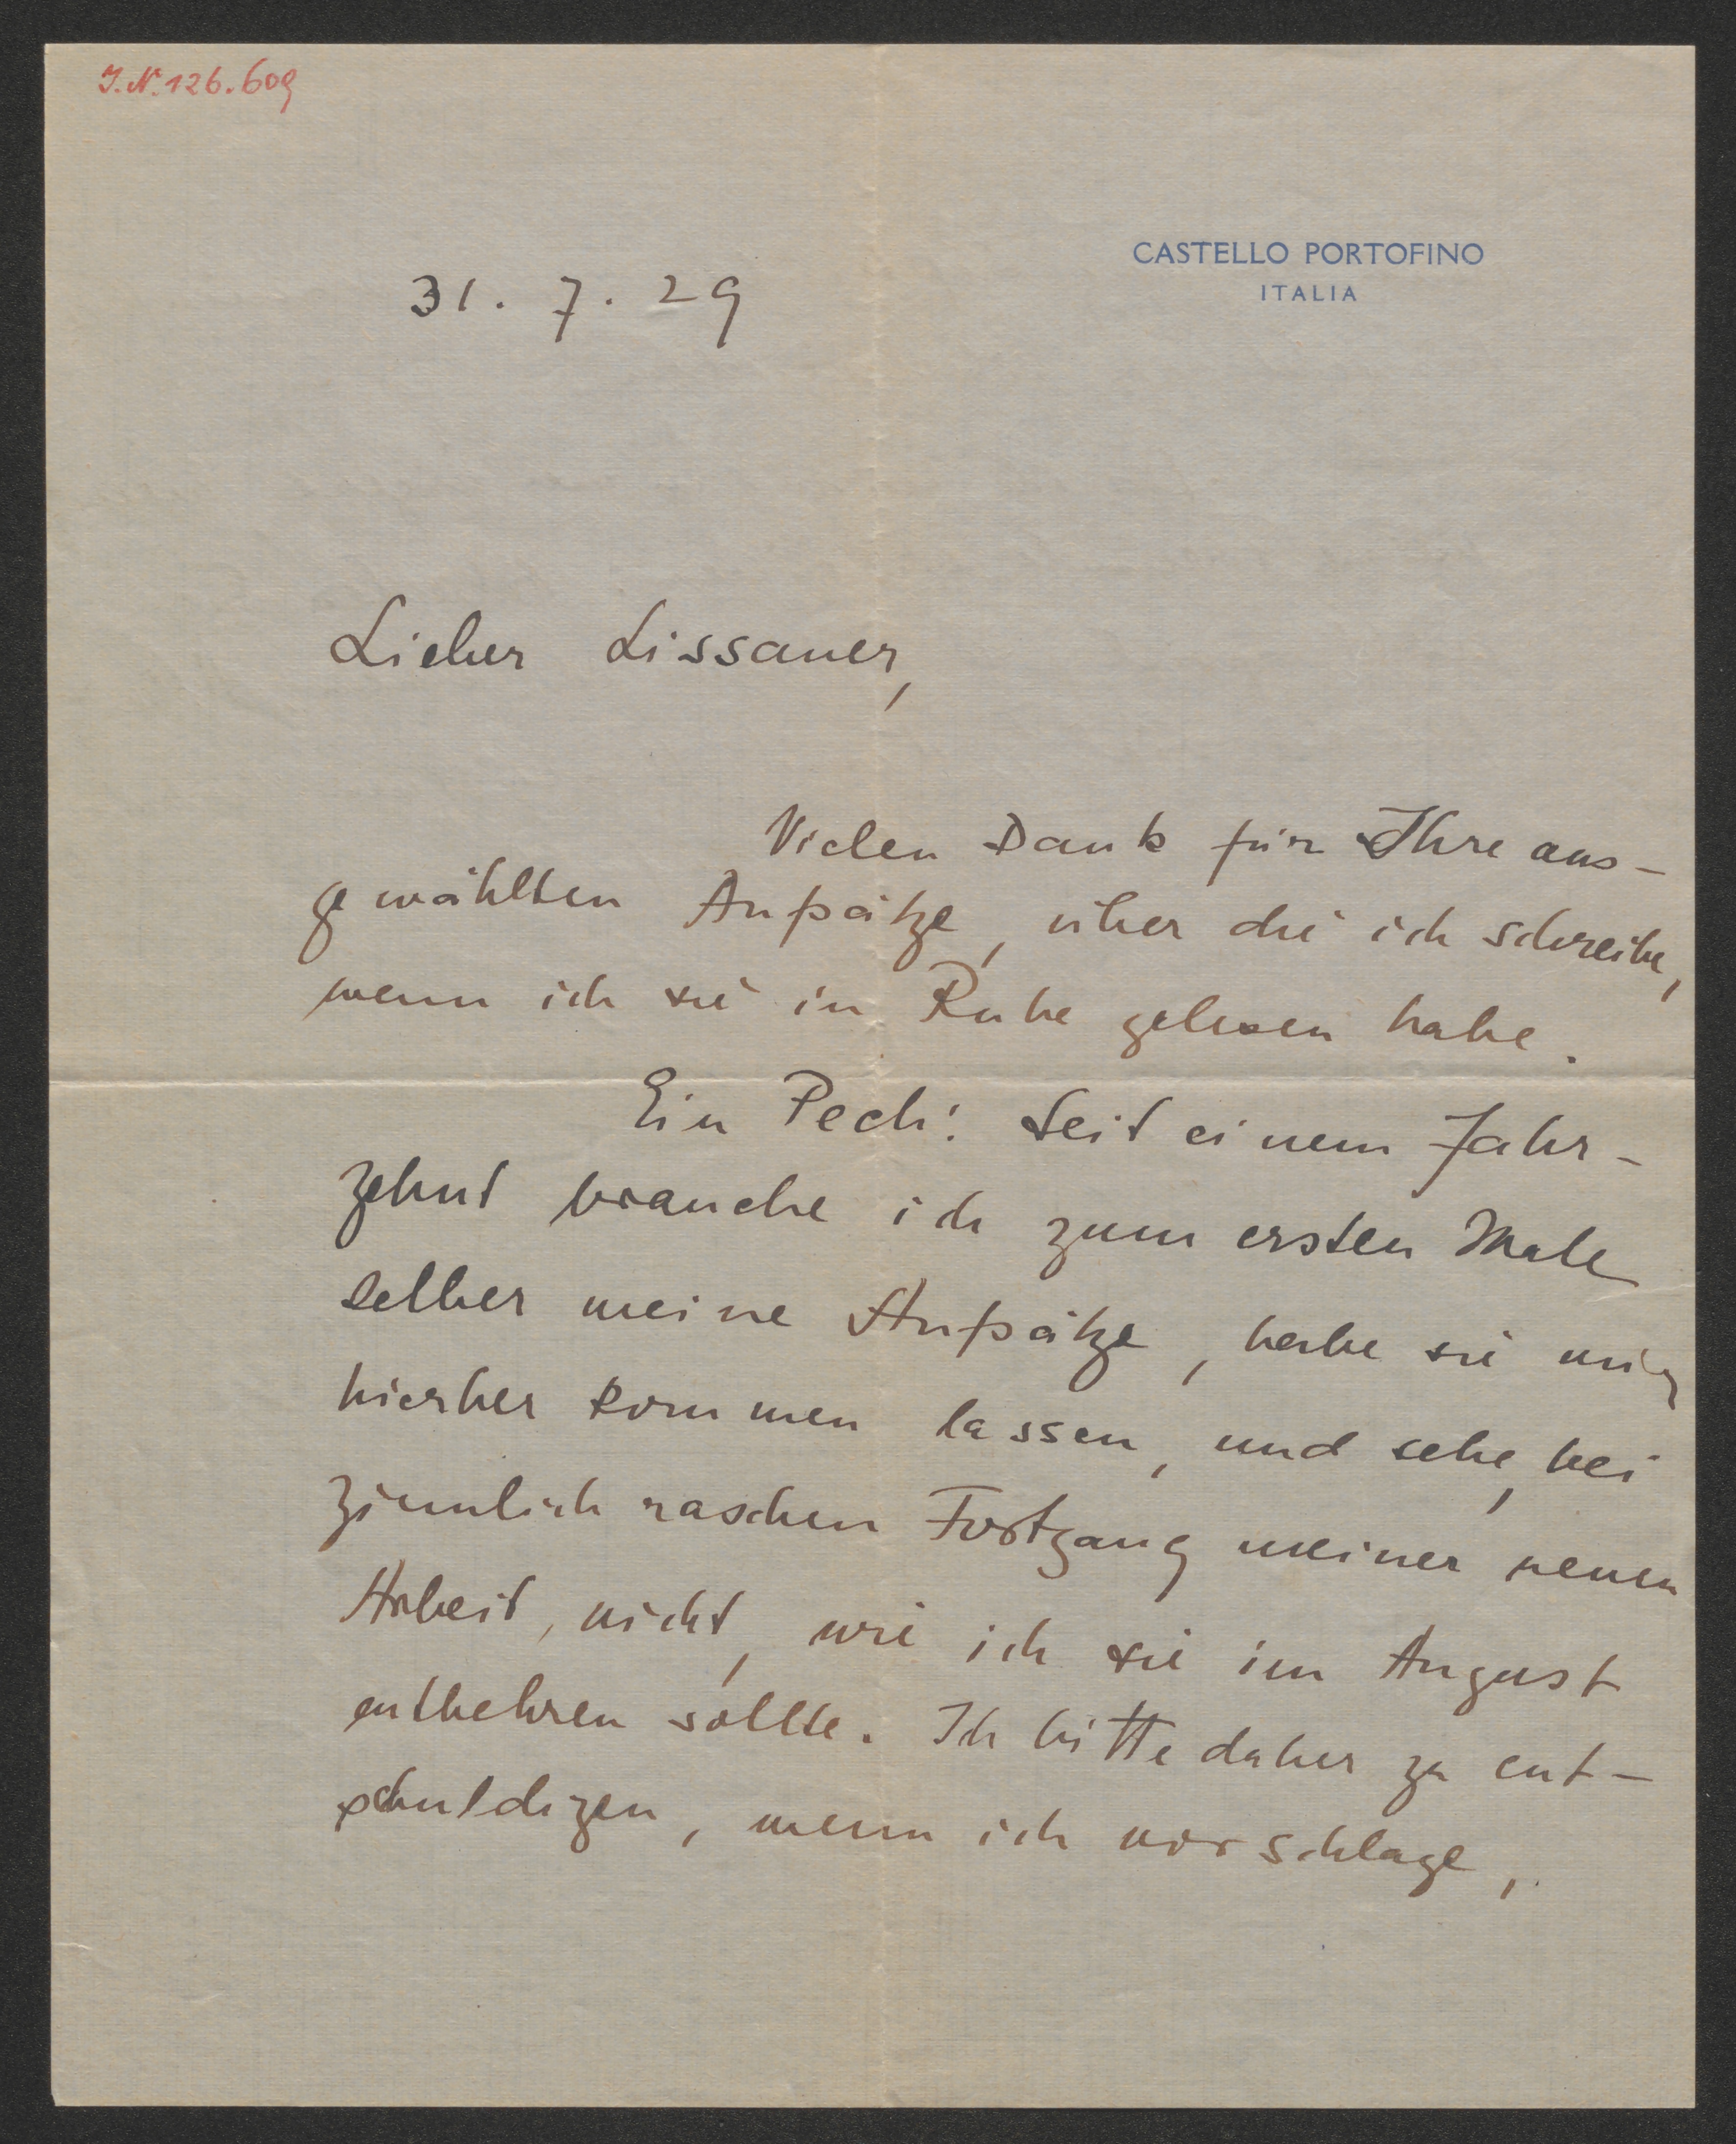 I.N. 126.609
CASTELLO PORTOFINO
ITALIA
31. 7. 29
Lieber Lissauer,
Vielen Dank für Ihre aus-
gewählten Aufsätze, über die ich schreibe,
wenn ich sie in Ruhe gelesen habe.
Ein Pech: Seit einem Jahr-
zehnt brauche ich zum ersten Male
selber meine Aufsätze, habe sie mir
hierher kommen lassen, und sehe, bei
ziemlich raschen Fortgang meiner neuen
Arbeit, nicht, wie ich sie im August
entbehren sollte. Ich bitte daher zu ent-
schuldigen, wenn ich vorschlage,